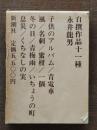 自撰作品十一種
永井龍男
子供のアルバム／青電車
風／名刺／蜜柑／一個
冬の日／青梅雨／いちょうの町
息災／くちなしの実
新潮社
定価五五〇〇円